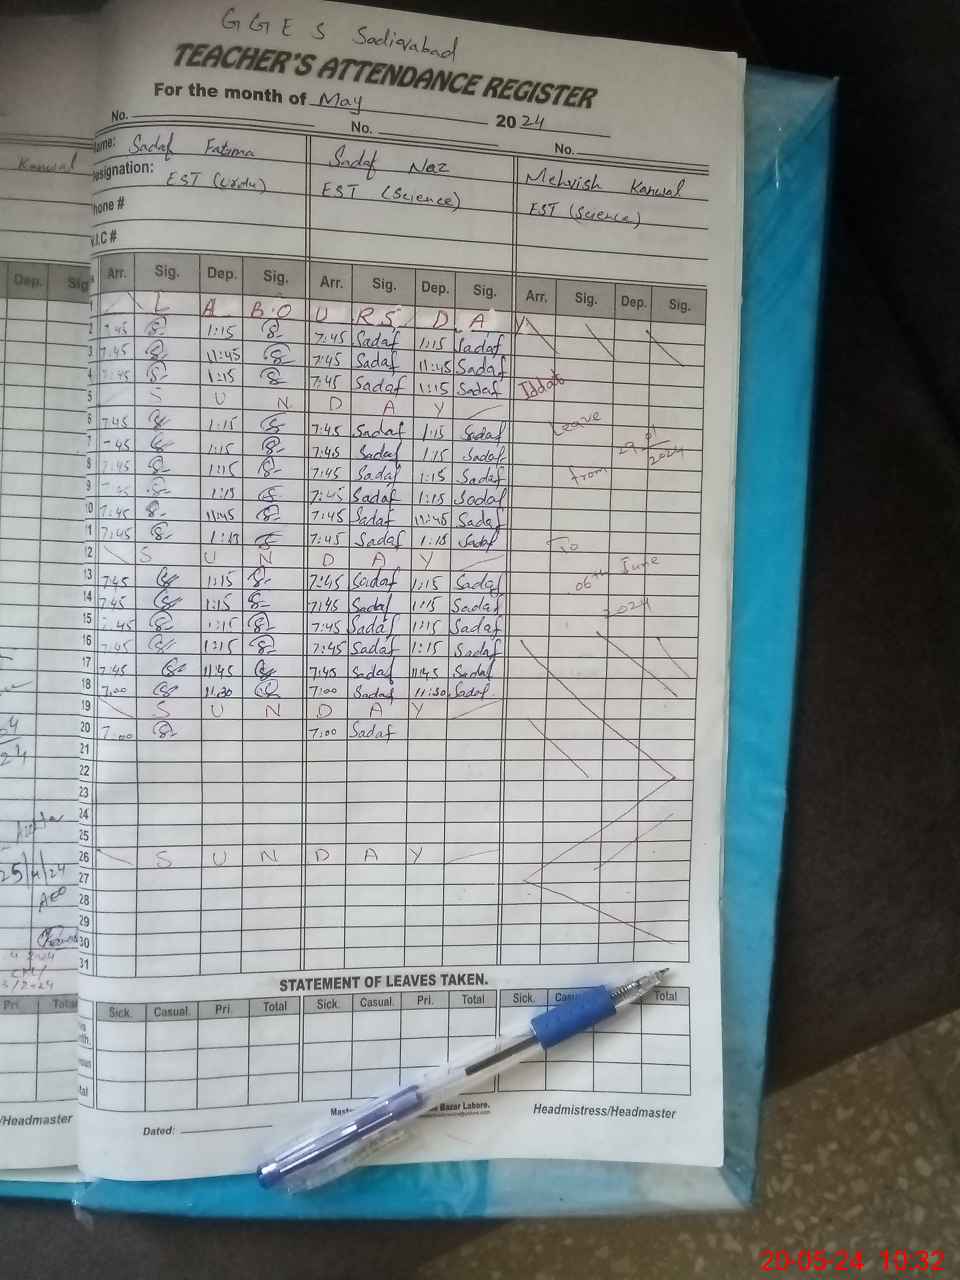 G G E S Sadiqabad
TEACHER'S ATTENDANCE REGISTER
For the month of May 2024
No. No. No.
Name: Sadaf Fatima Sadaf Naz Mehvish Kanwal
Designation: EST (Urdu) EST (Science) EST (Science)
Phone #
N.I.C #
Arr. Sig. Dep. Sig. Arr. Sig. Dep. Sig. Arr. Sig. Dep. Sig.
1 L A B.O U R S D A Y
2 7:45 1:15 7:45 Sadaf 1:15 Sadaf
3 7:45 11:45 7:45 Sadaf 11:45 Sadaf
4 7:45 1:15 7:45 Sadaf 1:15 Sadaf Iddat
5 S U N D A Y
6 7:45 1:15 7:45 Sadaf 1:15 Sadaf Leave
7 7:45 1:15 7:45 Sadaf 1:15 Sadaf 29-01/2024
8 7:45 1:15 7:45 Sadaf 1:15 Sadaf from
9 7:45 1:15 7:45 Sadaf 1:15 Sadaf
10 7:45 11:45 7:45 Sadaf 11:45 Sadaf
11 7:45 1:15 7:45 Sadaf 1:15 Sadaf To
12 S U N D A Y
13 7:45 1:15 7:45 Sadaf 1:15 Sadaf 06th June
14 7:45 1:15 7:45 Sadaf 1:15 Sadaf 2024
15 7:45 1:15 7:45 Sadaf 1:15 Sadaf
16 7:45 1:15 7:45 Sadaf 1:15 Sadaf
17 7:45 11:45 7:45 Sadaf 11:45 Sadaf
18 7:00 11:30 7:00 Sadaf 11:30 Sadaf
19 S U N D A Y
20 7:00 7:00 Sadaf
21
22
23
24
25
26 S U N D A Y
27
28
29
30
31
STATEMENT OF LEAVES TAKEN.
Sick. Casual. Pri. Total Sick. Casual. Pri. Total Sick. Total
Bazar Lahore.
Dated: Headmistress/Headmaster
Kanwal
Dep. Sig
25/4/24
AEO
Pri. Total
/Headmaster
20-05-24 10:32